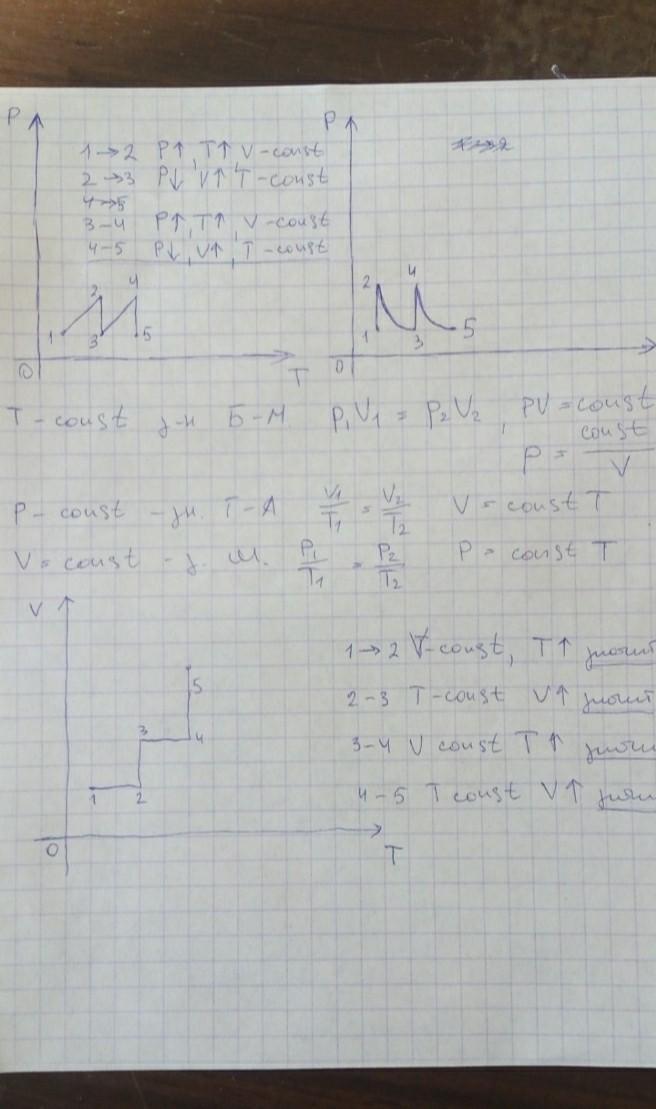 P
1→2 P↑, T↑ V-const
2→3 P↓ V↑ T-const
4→5
3-4 P↑, T↑, V-const
4-5 P↓, V↑, T-const
2 4
1 3 5
0 T
P
2 4
1 3 5
0
T-const з-н Б-М P₁V₁ = P₂V₂, PV = const
P = const/V
P-const - зн. Г-Л V₁/T₁ = V₂/T₂ V = const T
V = const - з. Ш. P₁/T₁ = P₂/T₂ P = const T
V
5
3 4
1 2
0 T
1→2 V-const, T↑
2-3 T-const V↑
3-4 V const T↑
4-5 T const V↑